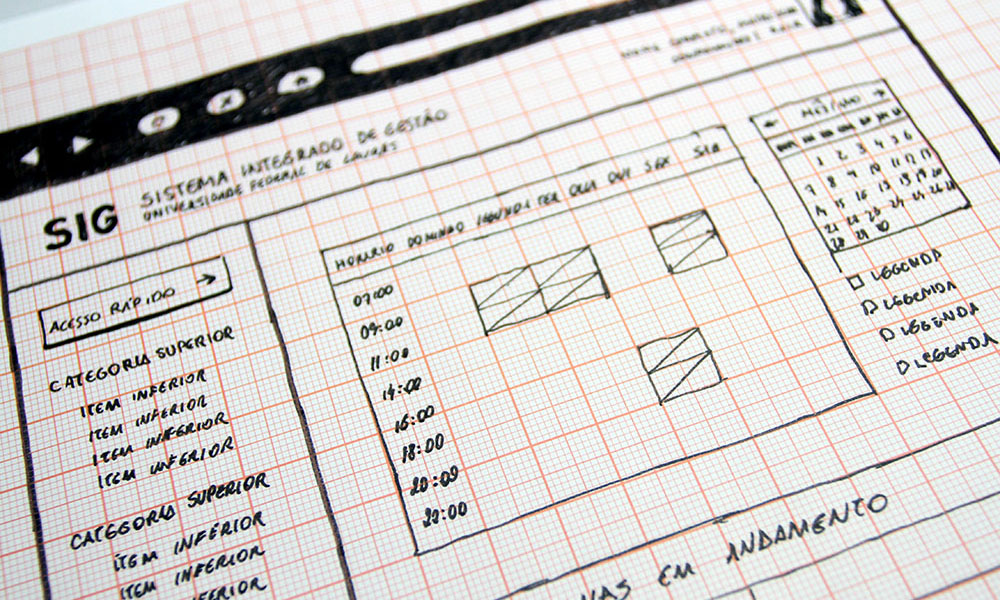 SIG
SISTEMA INTEGRADO DE GESTÃO
UNIVERSIDADE FEDERAL DE LAVRAS
ACESSO RÁPIDO →
CATEGORIA SUPERIOR
ITEM INFERIOR
ITEM INFERIOR
ITEM INFERIOR
ITEM INFERIOR
CATEGORIA SUPERIOR
ITEM INFERIOR
ITEM INFERIOR
INFERIOR
HORÁRIO DOMINGO SEGUNDA TER QUA QUI SEX SAB
07:00
09:00
11:00
14:00
16:00
18:00
20:00
22:00
← MÊS/ANO →
1 2 3 4 5 6
7 8 9 10 11 12 13
14 15 16
21 22 23 24 25 26
LEGENDA
LEGENDA
LEGENDA
LEGENDA
EM ANDAMENTO